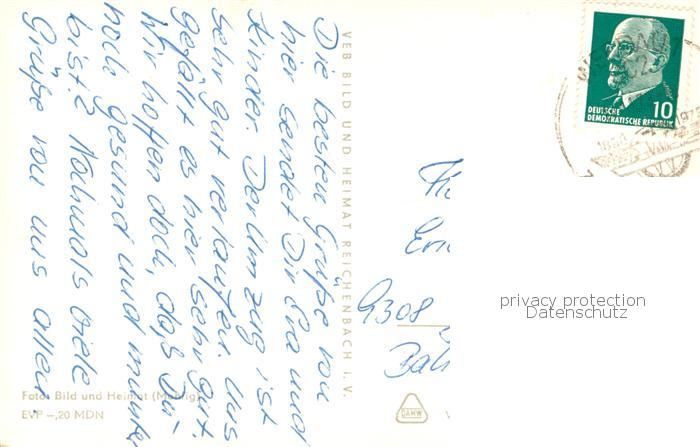 Die besten Grüße von
hier sendet Dir Eva und
Kinder. Der Umzug ist
sehr gut verlaufen. Uns
gefällt es hier sehr gut.
Wir hoffen doch, daß Du
noch gesund und munter
bist? Nochmals viele
Grüße von uns allen
VEB BILD UND HEIMAT REICHENBACH i. V.
Foto: Bild und Heimat
EVP –,20 MDN
DEUTSCHE
DEMOKRATISCHE REPUBLIK
10
9308
DAMW
privacy protection
Datenschutz